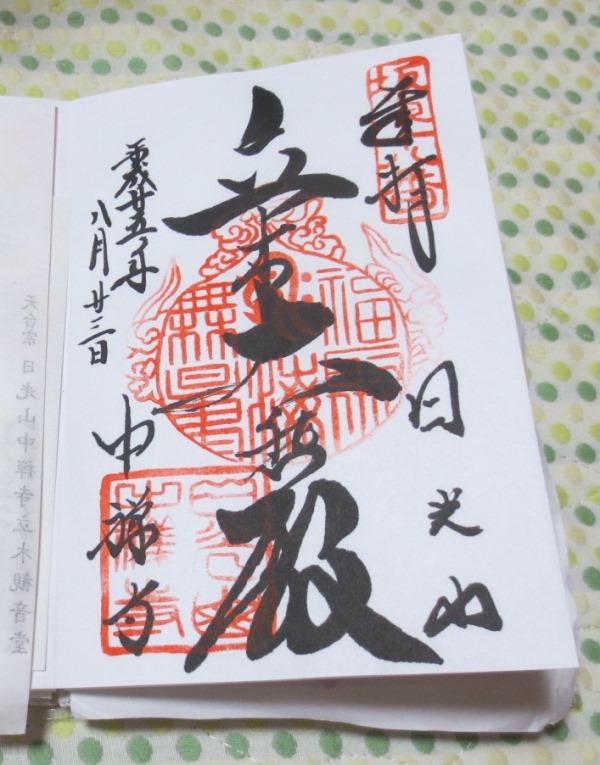 奉拝
日光山
立木大悲殿
平成廿五年
八月廿三日
中禅寺
天台宗 日光山中禅寺立木観音堂